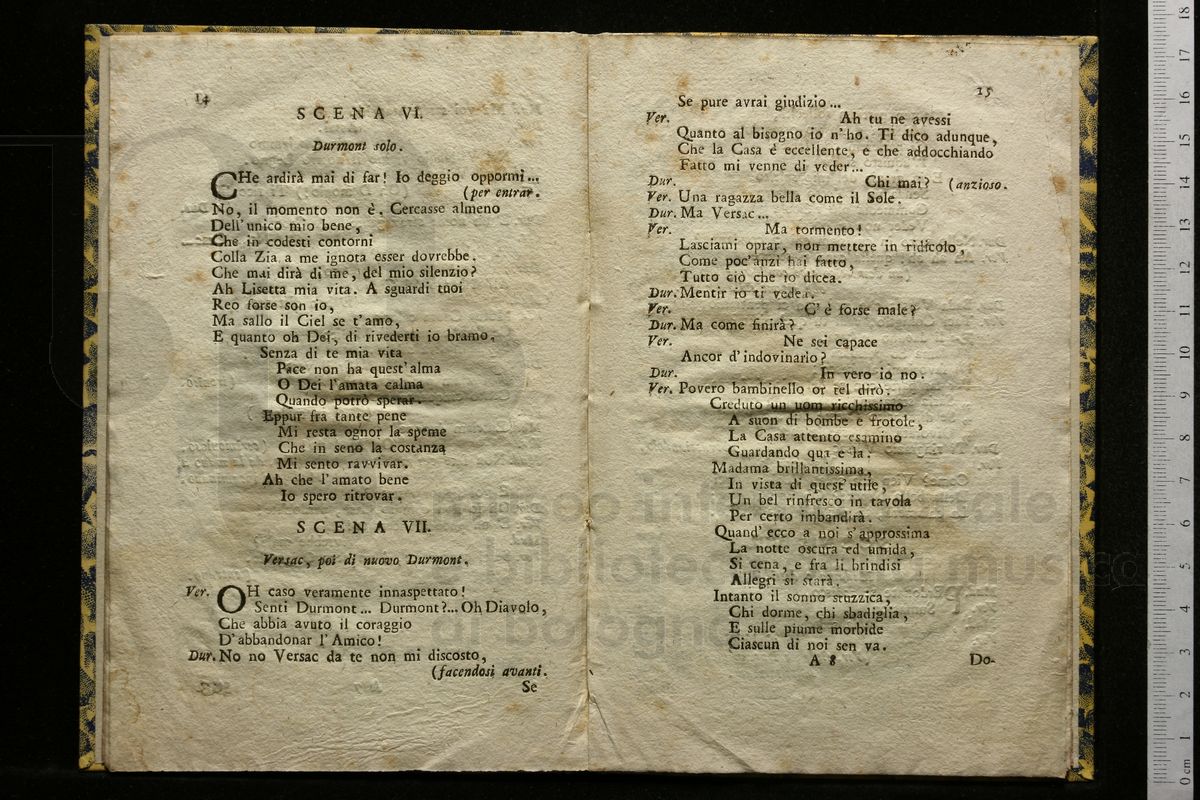 14
SCENA VI.
Durmont solo.
CHe ardirà mai di far! Io deggio oppormi...
(per entrar.
No, il momento non è. Cercasse almeno
Dell'unico mio bene,
Che in codesti contorni
Colla Zia a me ignota esser dovrebbe.
Che mai dirà di me, del mio silenzio?
Ah Lisetta mia vita. A sguardi tuoi
Reo forse son io,
Ma sallo il Ciel se t'amo,
E quanto oh Dei, di rivederti io bramo.
Senza di te mia vita
Pace non ha quest'alma
O Dei l'amata calma
Quando potrò sperar.
Eppur fra tante pene
Mi resta ognor la speme
Che in seno la costanza
Mi sento ravvivar.
Ah che l'amato bene
Io spero ritrovar.
SCENA VII.
Versac, poi di nuovo Durmont.
Ver. OH caso veramente innaspettato!
Senti Durmont... Durmont?... Oh Diavolo,
Che abbia avuto il coraggio
D'abbandonar l'Amico!
Dur. No no Versac da te non mi discosto,
(facendosi avanti.
Se
15
Se pure avrai giudizio...
Ver. Ah tu ne avessi
Quanto al bisogno io n'ho. Ti dico adunque,
Che la Casa è eccellente, e che addocchiando
Fatto mi venne di veder...
Dur. Chi mai? (anzioso.
Ver. Una ragazza bella come il Sole.
Dur. Ma Versac...
Ver. Ma tormento!
Lasciami oprar, non mettere in ridicolo,
Come poc'anzi hai fatto,
Tutto ciò che io dicea.
Dur. Mentir io ti vedea.
Ver. C'è forse male?
Dur. Ma come finirà?
Ver. Ne sei capace
Ancor d'indovinarlo?
Dur. In vero io no.
Ver. Povero bambinello or tel dirò.
Creduto un uom ricchissimo
A suon di bombe e frotole,
La Casa attento esamino
Guardando qua e là.
Madama brillantissima,
In vista di quest'utile,
Un bel rinfresco in tavola
Per certo imbandirà.
Quand'ecco a noi s'approssima
La notte oscura ed umida,
Si cena, e fra li brindisi
Allegri si starà.
Intanto il sonno stuzzica,
Chi dorme, chi sbadiglia,
E sulle piume morbide
Ciascun di noi sen va.
A 8 Do-